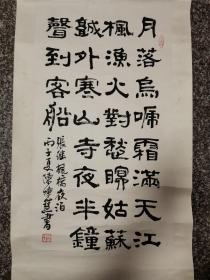 月落烏嗁霜滿天江
楓漁火對愁瞑姑蘇
城外寒山寺夜半鐘
聲到客船
張继楓橋夜泊
丙子夏陳 書